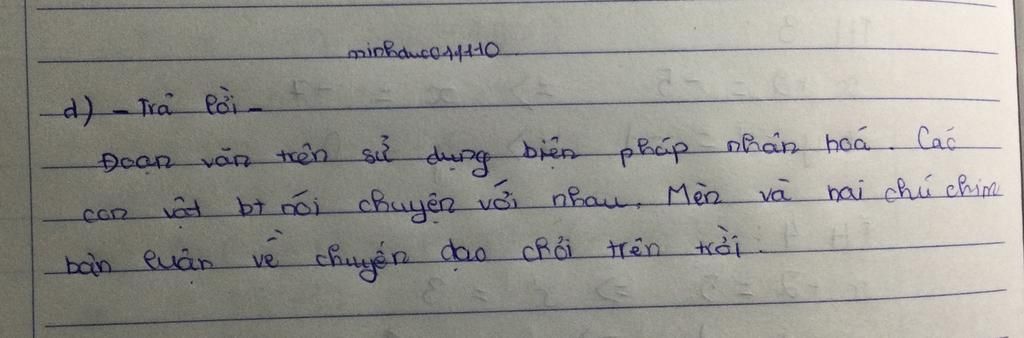 minhduc011110
d) - Trả lời -
Đoạn văn trên sử dụng biện pháp nhân hoá. Các
con vật bt nói chuyện với nhau. Mèn và hai chú chim
bàn luận về chuyến dạo chơi trên trời.